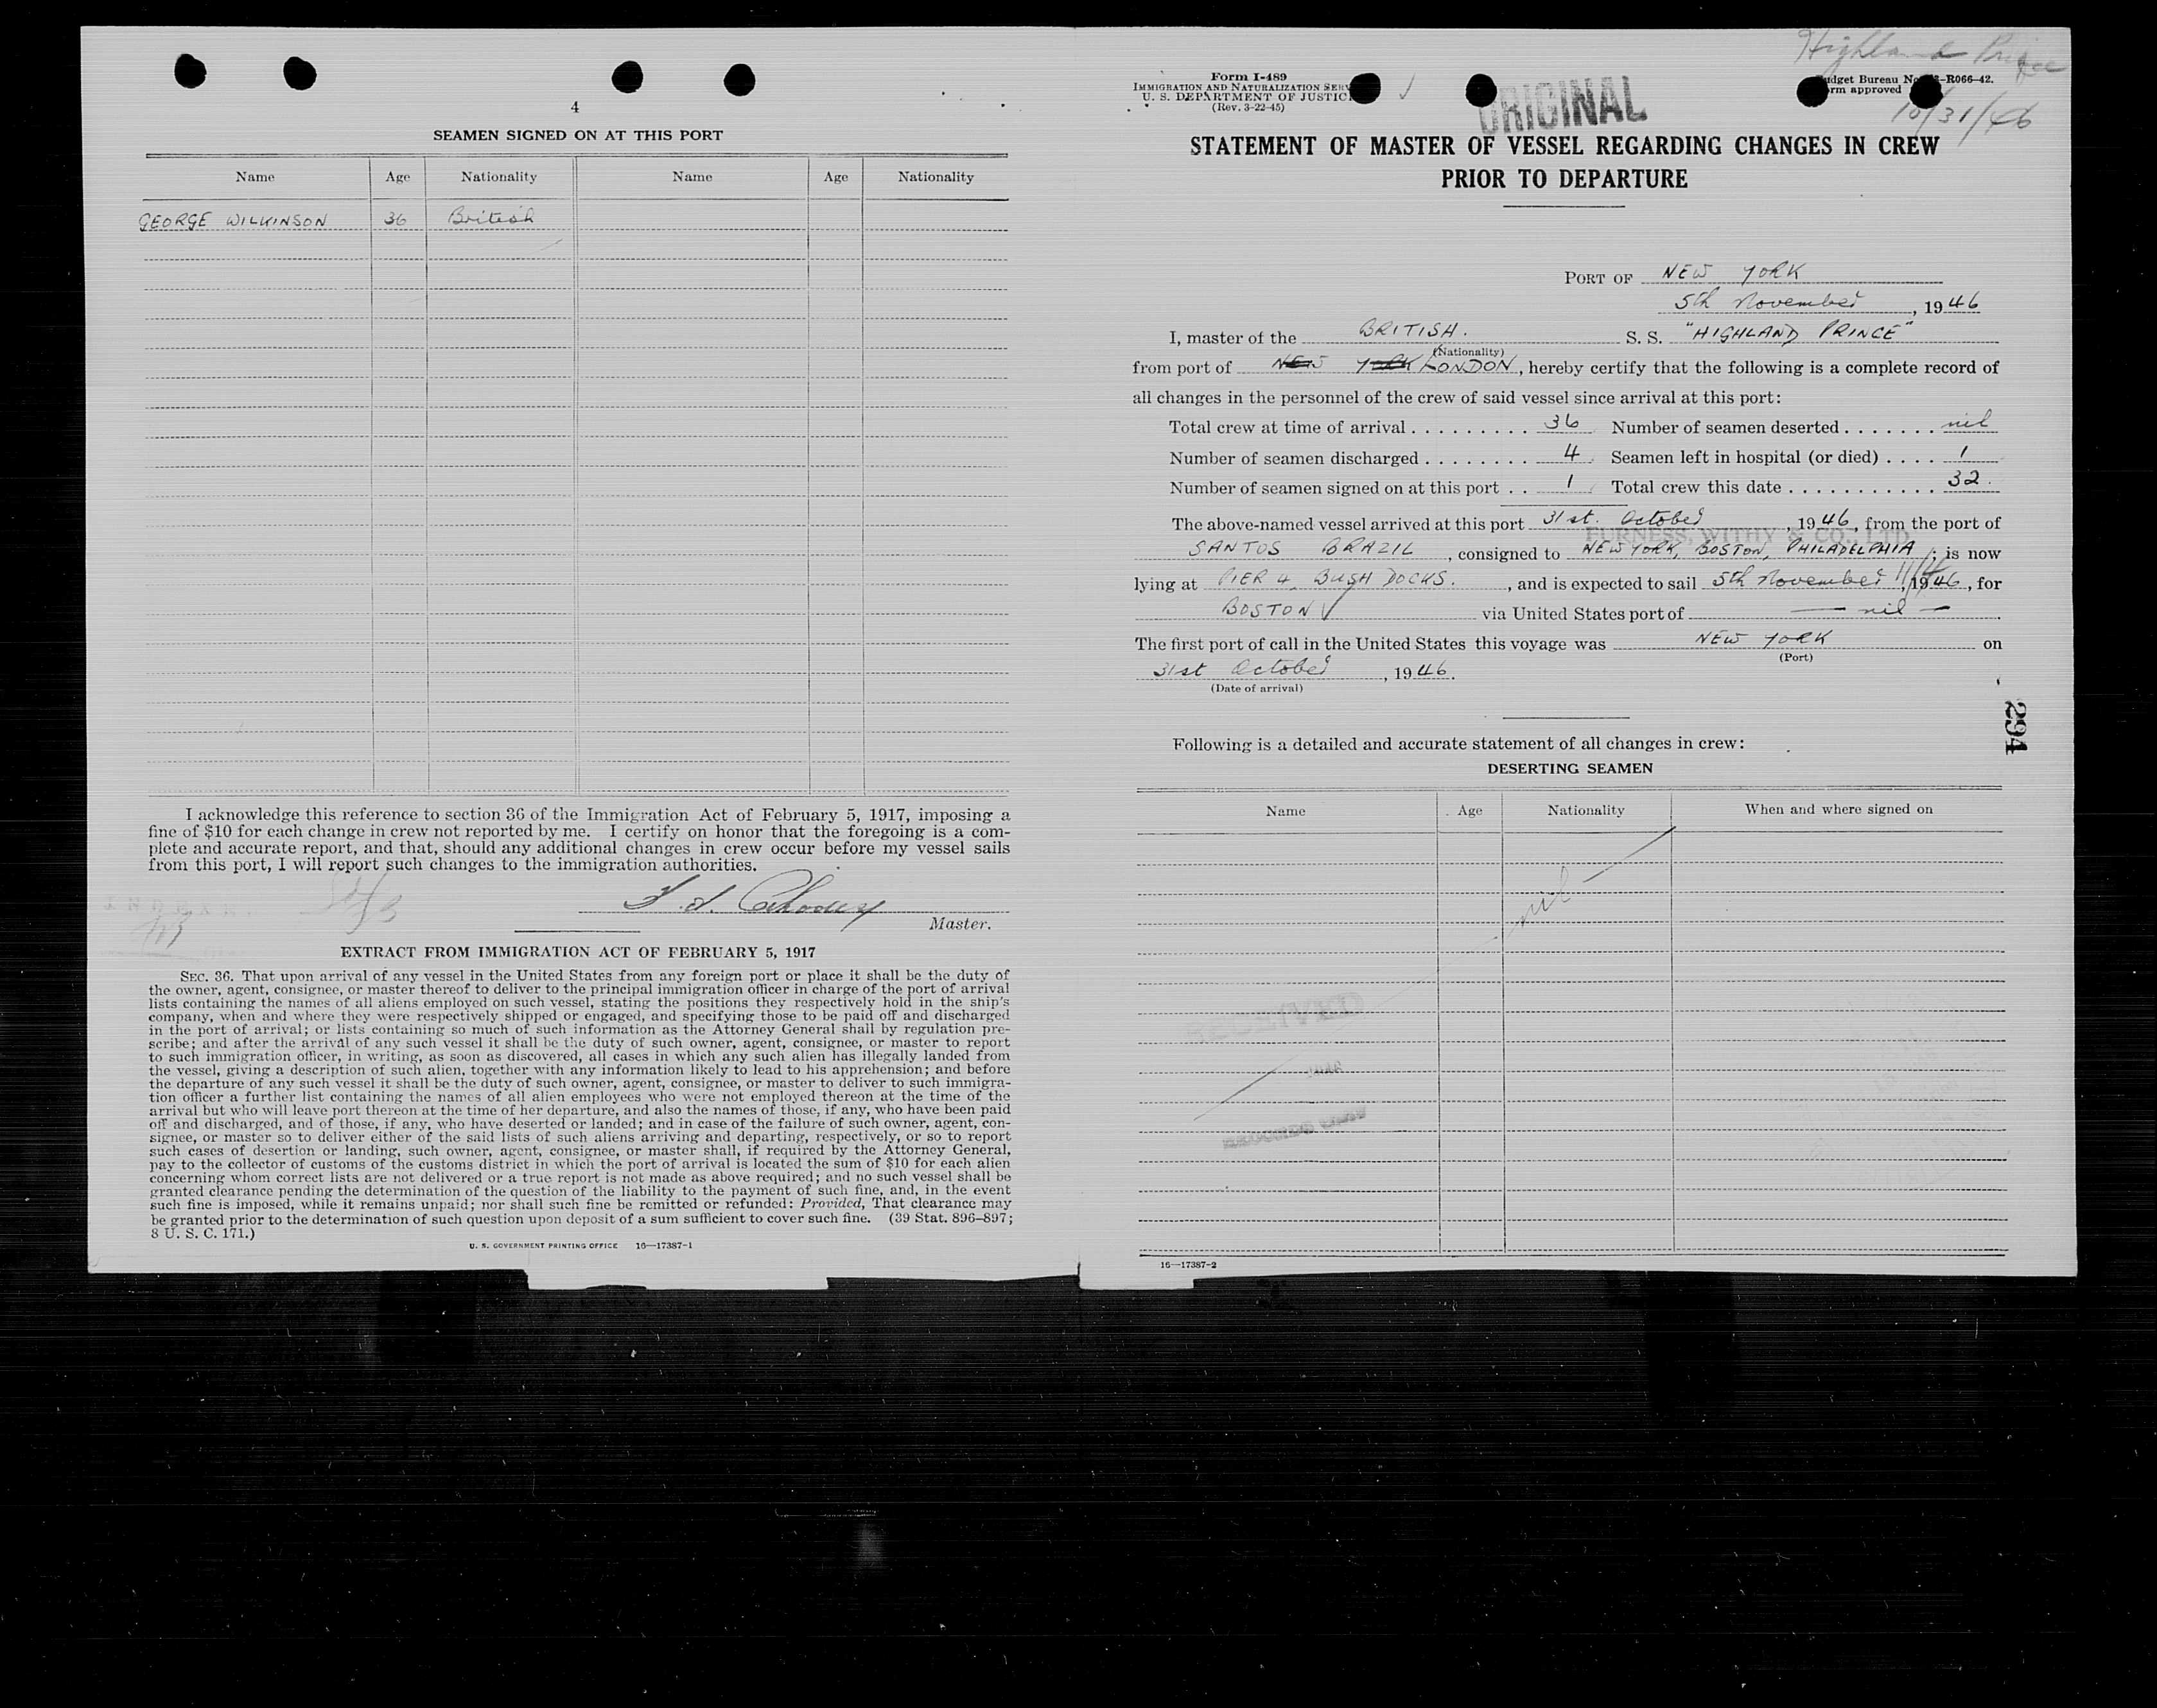 4
SEAMEN SIGNED ON AT THIS PORT
Name Age Nationality Name Age Nationality
GEORGE WILKINSON 36 British
I acknowledge this reference to section 36 of the Immigration Act of February 5, 1917, imposing a
fine of $10 for each change in crew not reported by me. I certify on honor that the foregoing is a com-
plete and accurate report, and that, should any additional changes in crew occur before my vessel sails
from this port, I will report such changes to the immigration authorities.
Master.
EXTRACT FROM IMMIGRATION ACT OF FEBRUARY 5, 1917
SEC. 36. That upon arrival of any vessel in the United States from any foreign port or place it shall be the duty of
the owner, agent, consignee, or master thereof to deliver to the principal immigration officer in charge of the port of arrival
lists containing the names of all aliens employed on such vessel, stating the positions they respectively hold in the ship's
company, when and where they were respectively shipped or engaged, and specifying those to be paid off and discharged
in the port of arrival; or lists containing so much of such information as the Attorney General shall by regulation pre-
scribe; and after the arrival of any such vessel it shall be the duty of such owner, agent, consignee, or master to report
to such immigration officer, in writing, as soon as discovered, all cases in which any such alien has illegally landed from
the vessel, giving a description of such alien, together with any information likely to lead to his apprehension; and before
the departure of any such vessel it shall be the duty of such owner, agent, consignee, or master to deliver to such immigra-
tion officer a further list containing the names of all alien employees who were not employed thereon at the time of the
arrival but who will leave port thereon at the time of her departure, and also the names of those, if any, who have been paid
off and discharged, and of those, if any, who have deserted or landed; and in case of the failure of such owner, agent, con-
signee, or master so to deliver either of the said lists of such aliens arriving and departing, respectively, or so to report
such cases of desertion or landing, such owner, agent, consignee, or master shall, if required by the Attorney General,
pay to the collector of customs of the customs district in which the port of arrival is located the sum of $10 for each alien
concerning whom correct lists are not delivered or a true report is not made as above required; and no such vessel shall be
granted clearance pending the determination of the question of the liability to the payment of such fine, and, in the event
such fine is imposed, while it remains unpaid; nor shall such fine be remitted or refunded: Provided, That clearance may
be granted prior to the determination of such question upon deposit of a sum sufficient to cover such fine. (39 Stat. 896–897;
8 U. S. C. 171.)
U. S. GOVERNMENT PRINTING OFFICE 16—17387-1
Highland Prince
10/31/46
Form I-489
IMMIGRATION AND NATURALIZATION SERV
U. S. DEPARTMENT OF JUSTIC
(Rev. 3-22-45)
ORIGINAL
udget Bureau No -R066-42.
rm approved
STATEMENT OF MASTER OF VESSEL REGARDING CHANGES IN CREW
PRIOR TO DEPARTURE
PORT OF NEW YORK
5th November, 1946
I, master of the BRITISH. S. S. "HIGHLAND PRINCE"
(Nationality)
from port of NEW YORK LONDON, hereby certify that the following is a complete record of
all changes in the personnel of the crew of said vessel since arrival at this port:
Total crew at time of arrival . . . . . . . . . 36 Number of seamen deserted . . . . . . . nil
Number of seamen discharged . . . . . . . . 4 Seamen left in hospital (or died) . . . . 1
Number of seamen signed on at this port . . 1 Total crew this date . . . . . . . . . . . . 32.
The above-named vessel arrived at this port 31st. October, 1946, from the port of
FURNESS, WITHY & CO., LTD.
SANTOS BRAZIL, consigned to NEW YORK, BOSTON, PHILADELPHIA; is now
lying at PIER 4, BUSH DOCKS., and is expected to sail 5th November, 1946, for
BOSTON via United States port of — nil —
The first port of call in the United States this voyage was NEW YORK on
(Port)
31st October, 1946.
(Date of arrival)
294
Following is a detailed and accurate statement of all changes in crew:
DESERTING SEAMEN
Name Age Nationality When and where signed on
nil
RECEIVED
16—17387-2